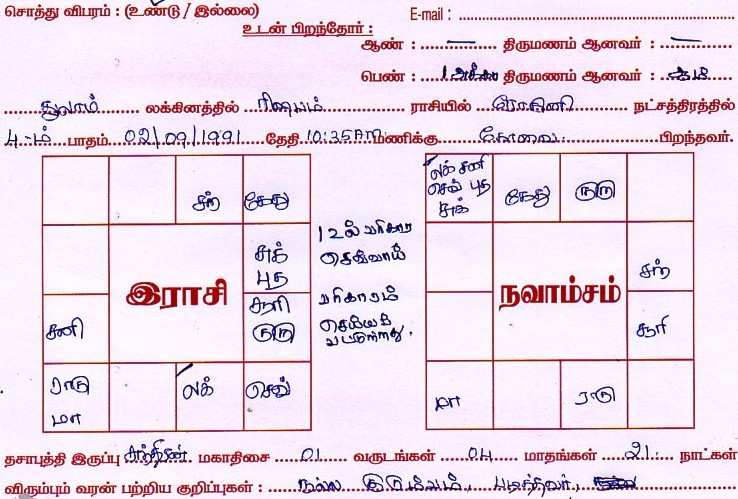 சொத்து விபரம் : (உண்டு / இல்லை) E-mail :
உடன் பிறந்தோர் :
ஆண் : — திருமணம் ஆனவர் : —
பெண் : 1 அக்கா திருமணம் ஆனவர் :
துலாம் லக்கினத்தில் ரிஷபம் ராசியில் ரோகிணி நட்சத்திரத்தில்
4-ம் பாதம் 02/09/1991 தேதி 10:35AM மணிக்கு கோவை பிறந்தவர்.
சந் கேது
சுக் புத
இராசி
சனி
சூரி குரு
ராகு மா
லக்
செவ்
12ல் பரிகார செவ்வாய்
பரிகாரம் செய்யப்பட்டுள்ளது.
லக் சனி செவ் புத சுக்
கேது குரு
சந்
நவாம்சம்
சூரி
மா
ராகு
தசாபுத்தி இருப்பு சந்திரன் மகாதிசை 01 வருடங்கள் 04 மாதங்கள் 21 நாட்கள்
விரும்பும் வரன் பற்றிய குறிப்புகள் : நல்ல குடும்பம், படித்தவர்,